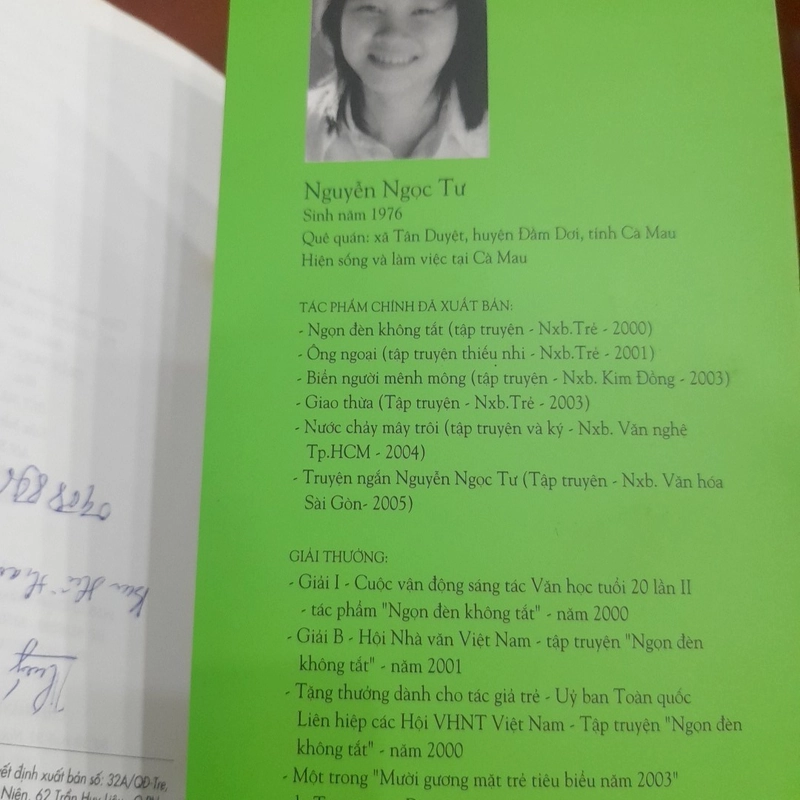 Nguyễn Ngọc Tư
Sinh năm 1976
Quê quán: xã Tân Duyệt, huyện Đầm Dơi, tỉnh Cà Mau
Hiện sống và làm việc tại Cà Mau
TÁC PHẨM CHÍNH ĐÃ XUẤT BẢN:
- Ngọn đèn không tắt (tập truyện - Nxb.Trẻ - 2000)
- Ông ngoại (tập truyện thiếu nhi - Nxb.Trẻ - 2001)
- Biển người mênh mông (tập truyện - Nxb. Kim Đồng - 2003)
- Giao thừa (Tập truyện - Nxb.Trẻ - 2003)
- Nước chảy mây trôi (tập truyện và ký - Nxb. Văn nghệ
Tp.HCM - 2004)
- Truyện ngắn Nguyễn Ngọc Tư (Tập truyện - Nxb. Văn hóa
Sài Gòn- 2005)
GIẢI THƯỞNG:
- Giải I - Cuộc vận động sáng tác Văn học tuổi 20 lần II
- tác phẩm "Ngọn đèn không tắt" - năm 2000
- Giải B - Hội Nhà văn Việt Nam - tập truyện "Ngọn đèn
không tắt" - năm 2001
- Tặng thưởng dành cho tác giả trẻ - Uỷ ban Toàn quốc
Liên hiệp các Hội VHNT Việt Nam - Tập truyện "Ngọn đèn
không tắt" - năm 2000
- Một trong "Mười gương mặt trẻ tiêu biểu năm 2003"
định xuất bản số: 32A/QĐ-Tre,
Niên, 62 Trần Huy